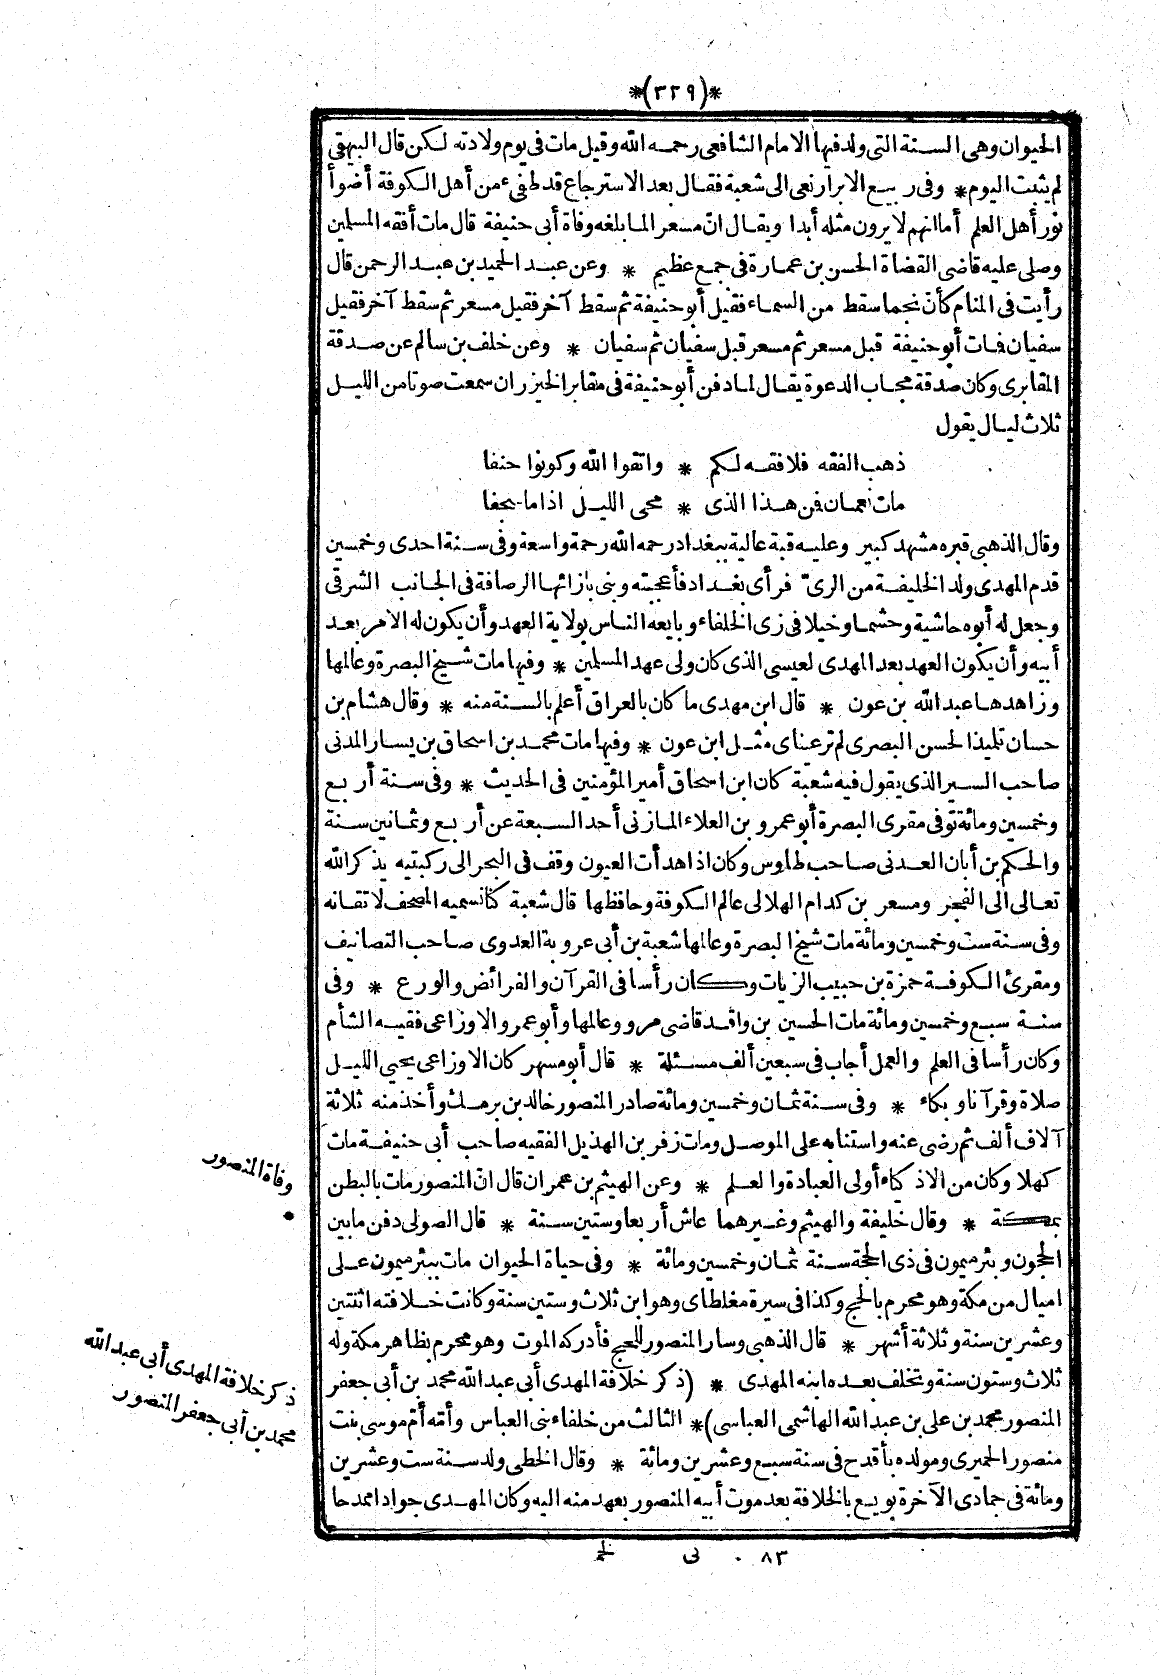 *(٣٢٩)*
الحيوان وهى السنة التى ولد فيها الامام الشافعى رحمه الله وقيل مات فى يوم ولادته لكن قال البيهقى
لم يثبت اليوم * وفى ربيع الابرار نعى الى شعبة فقال بعد الاسترجاع قد طفئ من أهل الكوفة أضوأ
نور أهل العلم أما انهم لا يرون مثله أبدا ويقال انّ مسعر المابلغه وفاة أبى حنيفة قال مات أفقه المسلمين
وصلى عليه قاضى القضاة الحسن بن عمارة فى جمع عظيم * وعن عبد الحميد بن عبد الرحمن قال
رأيت فى المنام كأن نجما سقط من السماء فقيل أبو حنيفة ثم سقط آخر فقيل مسعر ثم سقط آخر فقيل
سفيان فمات أبو حنيفة قبل مسعر ثم مسعر قبل سفيان ثم سفيان * وعن خلف بن سالم عن صدقة
المقابرى وكان صدقة مجاب الدعوة يقال لما دفن أبو حنيفة فى مقابر الخيزران سمعت صوتا من الليل
ثلاث ليال يقول
ذهب الفقه فلا فقه لكم * واتقوا الله وكونوا حنفا
مات نعمان فمن هذا الذى * يحى الليل اذا ما سجفا
وقال الذهبى قبره مشهد كبير وعليه قبة عالية ببغداد رحمه الله رحمة واسعة وفى سنة احدى وخمسين
قدم المهدى ولد الخليفة من الرىّ فرأى بغداد فأعجبته وبنى بازائها الرصافة فى الجانب الشرقى
وجعل له أبوه حاشية وحشما وخيلا فى زى الخلفاء وبايعه الناس بولاية العهد وأن يكون له الامر بعد
أبيه وأن يكون العهد بعد المهدى لعيسى الذى كان ولى عهد المسلمين * وفيها مات شيخ البصرة وعالمها
وزاهدها عبد الله بن عون * قال ابن مهدى ما كان بالعراق أعلم بالسنة منه * وقال هشام بن
حسان تلميذ الحسن البصرى لم تر عيناى مثل ابن عون * وفيها مات محمد بن اسحاق بن يسار المدنى
صاحب السير الذى يقول فيه شعبة كان ابن اسحاق أمير المؤمنين فى الحديث * وفى سنة أربع
وخمسين ومائة توفى مقرى البصرة أبو عمرو بن العلاء المازنى أحد السبعة عن أربع وثمانين سنة
والحكم بن أبان العدنى صاحب طاوس وكان اذا هدأت العيون وقف فى البحر الى ركبتيه يذكر الله
تعالى الى الفجر ومسعر بن كدام الهلالى عالم الكوفة وحافظها قال شعبة كنا نسميه المصحف لاتقانه
وفى سنة ست وخمسين ومائة مات شيخ البصرة وعالمها شعبة بن أبى عروبة العدوى صاحب التصانيف
ومقرئ الكوفة حمزة بن حبيب الزيات وكان رأسا فى القرآن والفرائض والورع * وفى
سنة سبع وخمسين ومائة مات الحسين بن واقد قاضى مرو وعالمها وأبو عمرو الاوزاعى فقيه الشأم
وكان رأسا فى العلم والعمل أجاب فى سبعين ألف مسئلة * قال أبو مسهر كان الاوزاعى يحيى الليل
صلاة وقرآنا وبكاء * وفى سنة ثمان وخمسين ومائة صادر المنصور خالد بن برمك وأخذ منه ثلاثة
آلاف ألف ثم رضى عنه واستنابه على الموصل ومات زفر بن الهذيل الفقيه صاحب أبى حنيفة مات
كهلا وكان من الاذكياء أولى العبادة والعلم * وعن الهيثم بن عمران قال انّ المنصور مات بالبطن
بمكة * وقال خليفة والهيثم وغيرهما عاش أربعا وستين سنة * قال الصولى دفن ما بين
الحجون وبئر ميمون فى ذى الحجة سنة ثمان وخمسين ومائة * وفى حياة الحيوان مات ببئر ميمون على
اميال من مكة وهو محرم بالحج وكذا فى سيرة مغلطاى وهو ابن ثلاث وستين سنة وكانت خلافته اثنتين
وعشرين سنة وثلاثة أشهر * قال الذهبى وسار المنصور للحج فأدركه الموت وهو محرم بظاهر مكة وله
ثلاث وستون سنة وتخلف بعده ابنه المهدى * (ذكر خلافة المهدى أبى عبد الله محمد بن أبى جعفر
المنصور محمد بن على بن عبد الله الهاشمى العباسى) * الثالث من خلفاء بنى العباس وأمّه أمّ موسى بنت
منصور الحميرى ومولده بأقدح فى سنة سبع وعشرين ومائة * وقال الخطى ولد سنة ست وعشرين
ومائة فى جمادى الآخرة بويع بالخلافة بعد موت أبيه المنصور بعهد منه اليه وكان المهدى جوادا ممدحا
وفاة المنصور
ذكر خلافة المهدى أبى عبد الله
محمد بن أبى جعفر المنصور
٨٣ نى